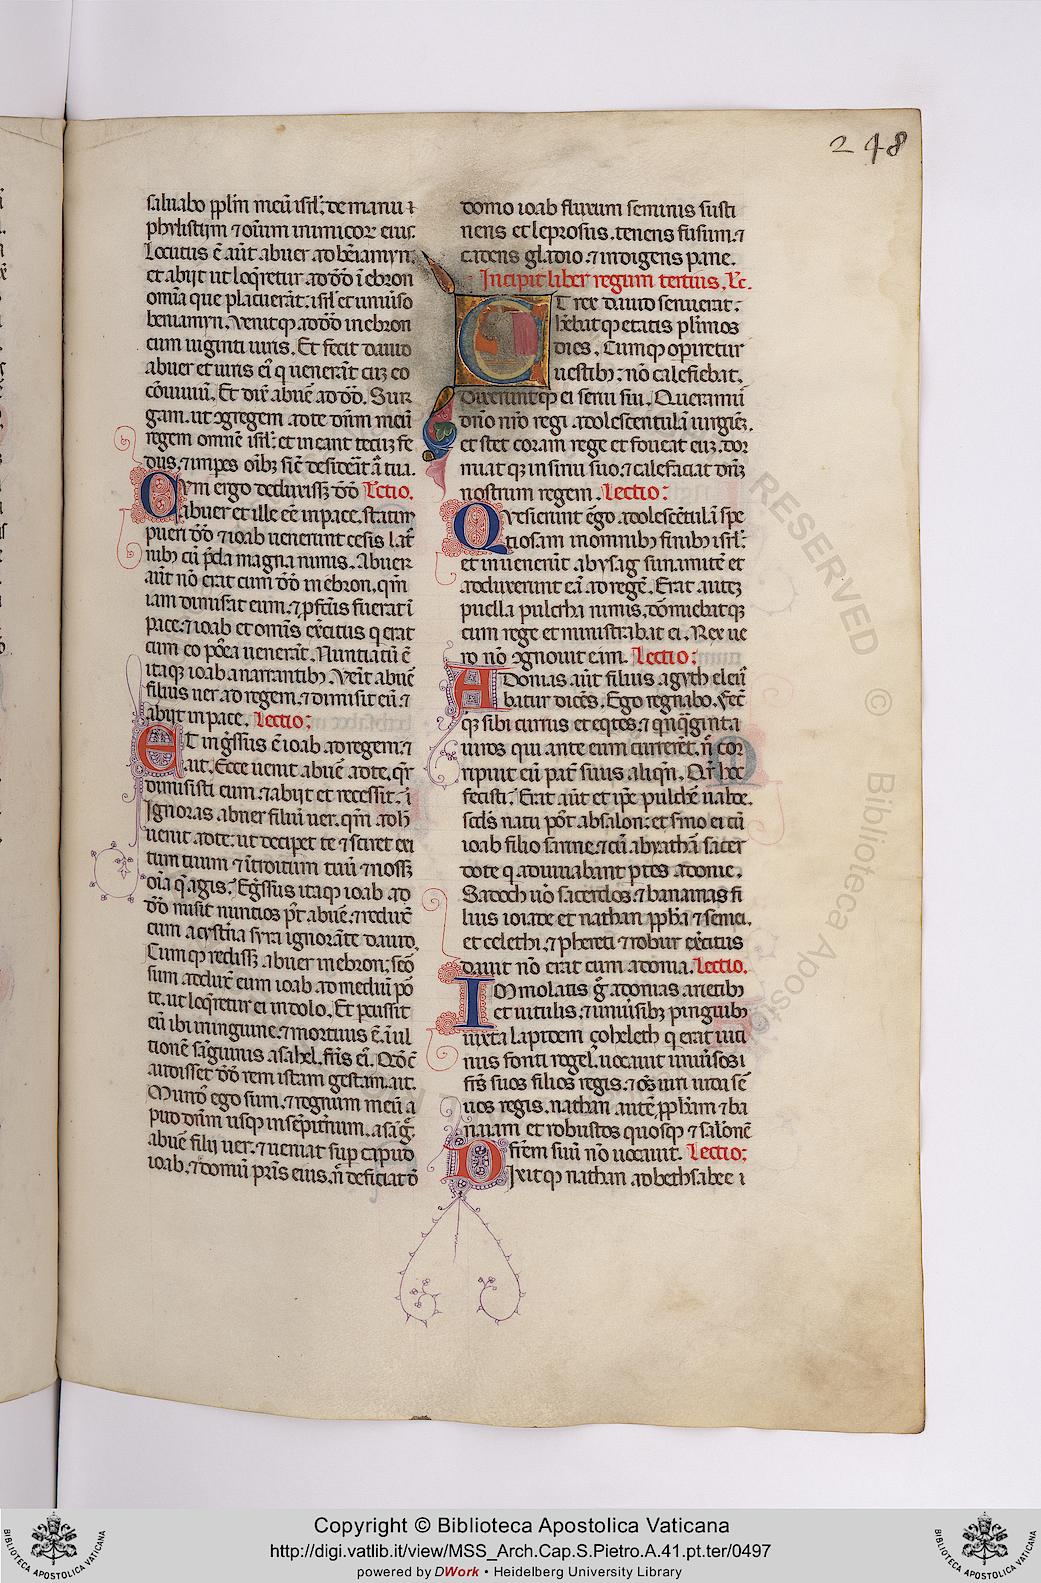 248
saluabo ppl̃m meũ isrl̃: de manu ⁊
phylistijm ⁊ om̃ium inimicoꝝ eius.
Locutus ẽ aũt abner ad beniamyn.
et abijt ut loq̃retur ad dd̃ ĩ ebron
omĩa que placuerãt. isrl̃ et uniũso
beniamyn. Venitqꝫ ad dd̃ in ebron
cum uiginti uiris. Et fecit dauid
abner et uiris eĩ q uenerãt cuꝫ eo
cõuiuiũ. Et dix̃ abnẽ ad dd̃. Sur
gam. ut ꝯgregem ad te dñm meũ
regem omnẽ isrl̃: et ineant tecuꝫ fe
dus. ⁊ impes oĩbꝫ sic̃ desiderãt ã tua.
Cvm ergo deduxissꝫ dd̃ Lectio.
abner et ille eẽ in pace. statim
pueri dd̃ ⁊ ioab uenerunt cesis lat̃
nibꝫ cũ p̃da magna nimis. Abner
aũt nõ erat cum dd̃ in ebron. qm̃
iam dimis̃at eum. ⁊ pfct̃us fuerat ĩ
pace. ⁊ ioab et omĩs ex̃citus q erat
cum eo põea uenerãt. Nuntiatũ ẽ
itaqꝫ ioab a narrantibꝫ. Veñit abnẽ
filius ner ad regem. ⁊ dimisit eũ. ⁊
abijt in pace. Lectio:
ET ing̃ssus ẽ ioab ad regem. ⁊
ait. Ecce uenit abnẽ ad te. q̃r
dimisisti eum. ⁊ abijt et recessit. ĩ
Ignoras abner filiũ ner. qm̃ ad h̃
uenit ad te. ut decipet te ⁊ sciret exi
tum tuum ⁊ ĩtroitum tuũ ⁊ nossꝫ
oĩa q̃ agis. Eg̃ssus itaqꝫ ioab a d
dd̃ misit nuntios p̃t abnẽ. ⁊ reduxẽ
eum a cyst̃na syra ignorãte dauid.
Cumqꝫ redissꝫ abner in ebron. seõ
sum adduxẽ eum ioab ad mediũ põ
te. ut loq̃retur ei in dolo. Et pcussit
eũ ibi in inguine. ⁊ mortuus ẽ. ĩ ul
tionẽ sãguinis asahel. fr̃is eĩ. Qd̃ cẽ
audisset dd̃ rem istam gestam. ait.
Mund̃ ego sum. ⁊ regnum meũ a
pud dñm usqꝫ in sẽpit̃num. a sãg̃.
abnẽ filij ner. ⁊ ueniat sup caput
ioab. ⁊ domũ pr̃is eius. ñ deficiat d̃
domo ioab fluxum seminis susti
nens et leprosus. tenens fusum. ⁊
cadens gladio. ⁊ indigens pane.
Incipit liber regum tertius. Lc̃.
ET rex dauid senuerat:
hẽbatqꝫ etatis plr̃imos
dies. Cumqꝫ opiretur
uestibꝫ: nõ calefiebat.
Dixeruntqꝫ ei serui sui. Queramꝰ
dño nr̃o regi adolescentulã uirginẽ.
et stet coram rege et foueat euꝫ. dor
miatqꝫ in sinu suo. ⁊ calefaciat dñꝫ
nostrum regem. Lectio:
Qvesierunt ẽgo adolescẽtulã spe
tiosam in omnibꝫ finibꝫ isrl̃:
et inuenerũt abysag sunamitẽ et
adduxerunt eã ad regẽ. Erat auteꝫ
puella pulchra nimis. dõmiebatqꝫ
cum rege et ministrabat ei. Rex ue
ro nõ ꝯgnouit eam. Lectio:
ADonias aũt filius agyth eleuã
batur dicẽs. Ego regnabo. Fecit̃
qꝫ sibi currus et eq̃tes. ⁊ qn̄q̃ginta
uiros qui ante eum currerẽt. ñ cor
ripuit eũ pat̃ suus aliqñ. Qr̃ hoc
fecisti. Erat aũt et ip̃e pulchẽ ualde.
scd̃s natu p̃t absalon: et sm̃o ei cũ
ioab filio saruie. ⁊ cũ abyathã sacer
dote q adiuuabant p̃tes adonie.
Sadoch ũo sacerdos. ⁊ banaias fi
lius ioiade et nathan pph̃a ⁊ semei.
et celethi. ⁊ phereti ⁊ robur ex̃citus
dauit nõ erat cum adonia. Lectio.
IMmolatis g̃ adonias arietibꝫ
et uitulis. ⁊ uniũsibꝫ pinguibꝫ
iuxta lapidem çoheleth q erat uici
nus fonti rogel. uocauit uniũsos ĩ
fr̃s suos filios regis. ⁊ oẽs uiri iuda sẽ
uos regis. nathan autẽ pph̃am ⁊ ba
naiam et robustos quosqꝫ ⁊ salõnẽ
fr̃em suũ nõ uocauit. Lectio:
Dixitqꝫ nathan ad bethsabee ĩ
RESERVED © Biblioteca Apostolica
BIBLIOTECA APOSTOLICA VATICANA
Copyright © Biblioteca Apostolica Vaticana
http://digi.vatlib.it/view/MSS_Arch.Cap.S.Pietro.A.41.pt.ter/0497
powered by DWork • Heidelberg University Library
BIBLIOTECA APOSTOLICA VATICANA